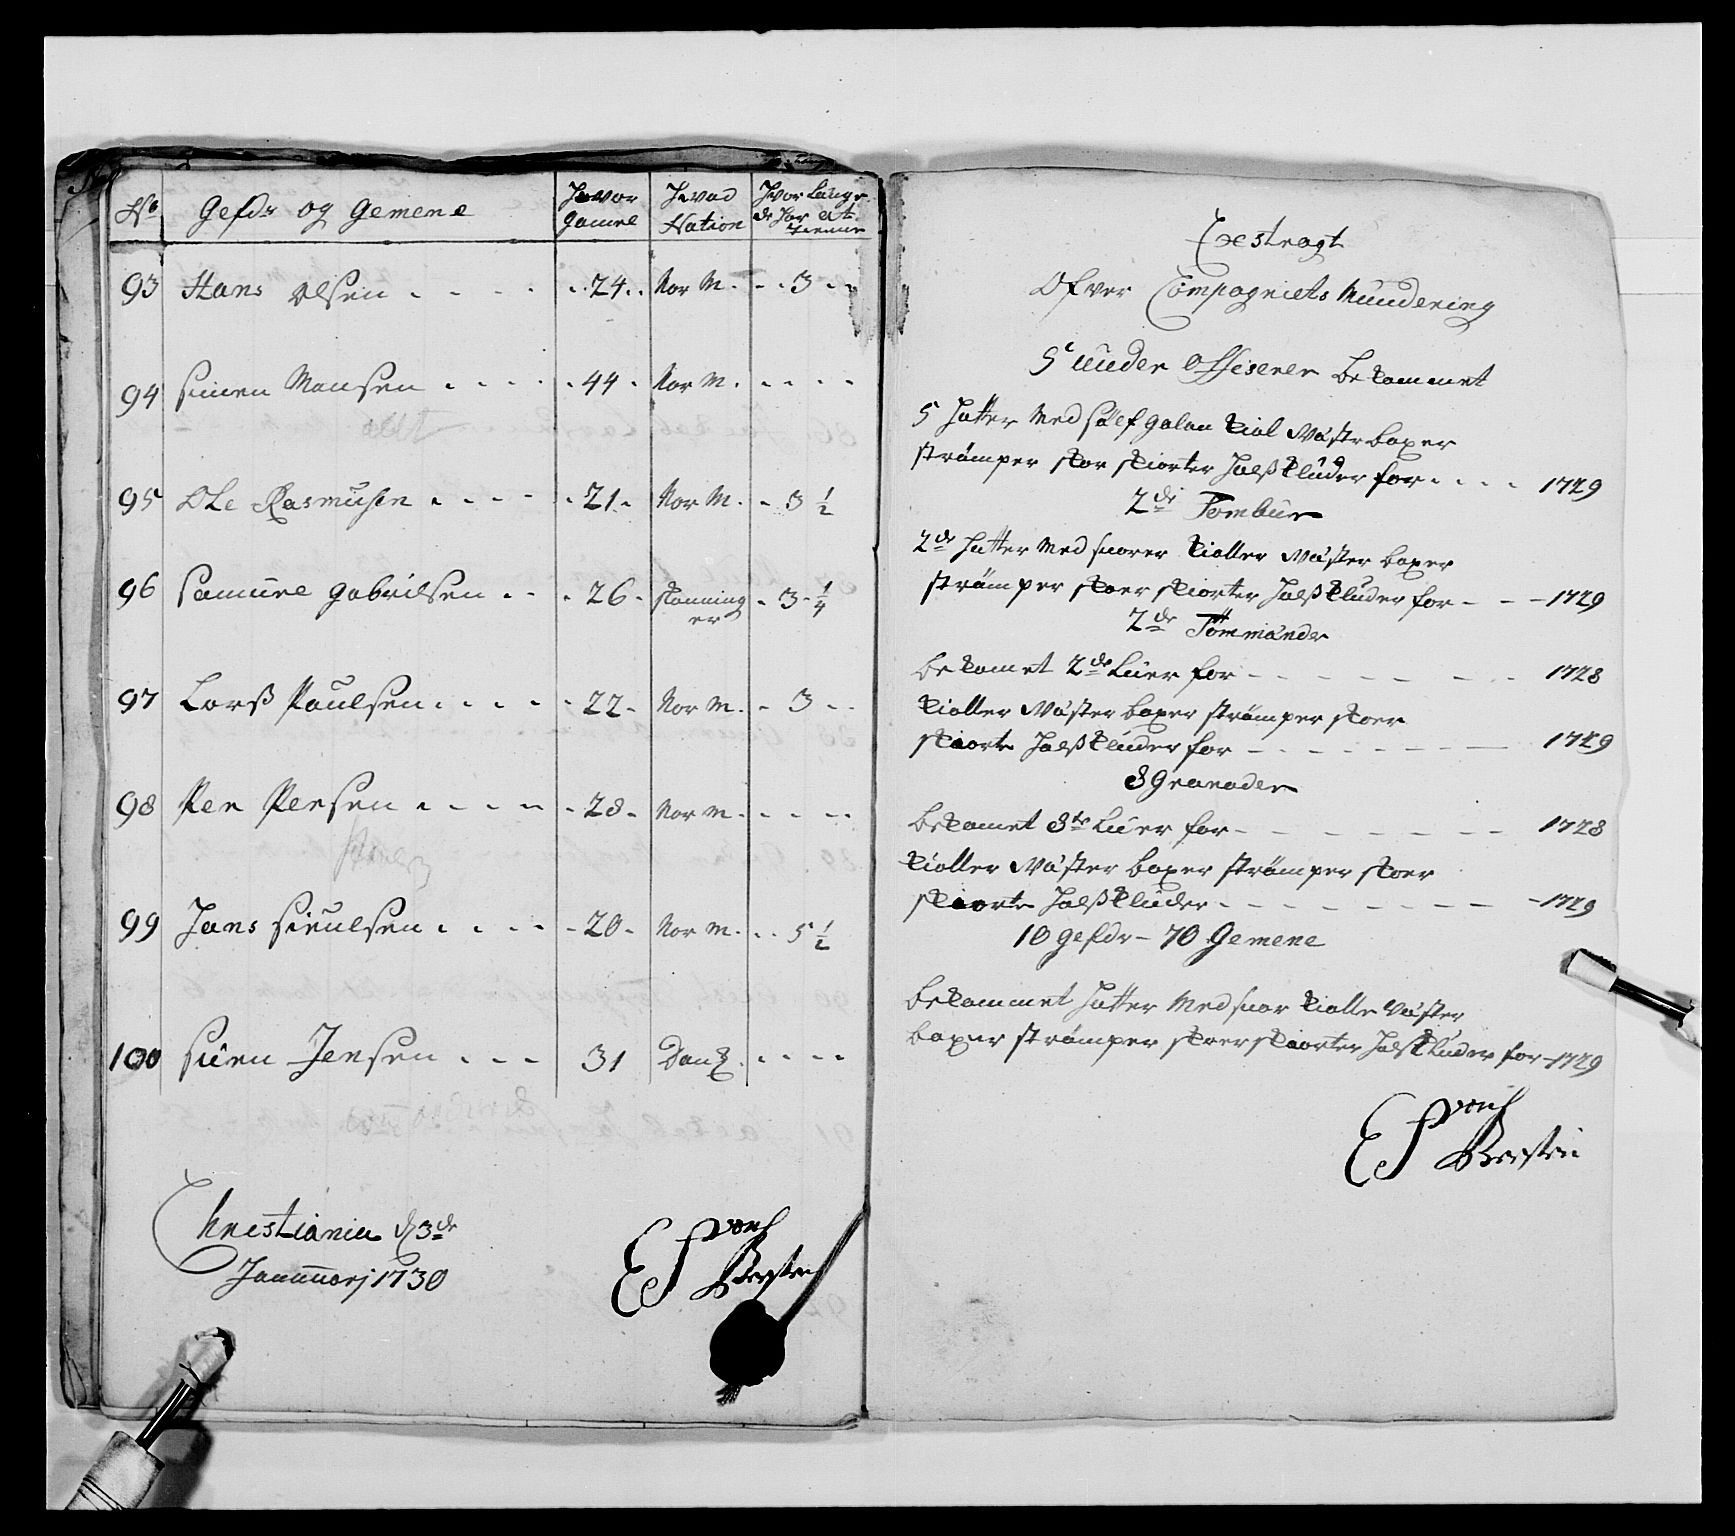 No Gefdr og Gemene Hvor Gamel Hvad Nation Hvor Länge de Har at tienne
93 Hans Olsen . . . . . 24 . . Nor M . . . 3 . .
94 Simen Monsen . . . . . 44 . Nor M . . . . .
95 Ole Rasmusen . . . . . 21 . Nor M . . 3 1/2
96 Samuel Gabrilsen . . . 26 . skaaning er . 3 1/4
97 Lorß Paulsen . . . . . 22 . Nor M . . 3 . .
98 Per Persen . . . . . 28 . Nor M . . . . .
99 Jans Sieulsen . . . . . 20 . Nor M . . . 5 1/2
100 Sören Jensen . . . 31 Dansk . . . .
Christiania d 3de
Januuarj 1730
E P von Bersten
Exstragt
Ofver Compagniets Mundering
5 under Offiserer bekommet
5 Hatter Med Sölf galon Kiol Väste boxer
strömper skor skiorter Halßklüder for . . . . 1729
2de Tombur
2de Hatter Med snorer Kioller Väster boxer
strömper skoer skiorter Halßkluder for - - - 1729
2de Tömmänds
bekomet 2de Luer for - - - - - - - 1728
Kioller Väster boxer strömper skoer
skiorte Halßklüder for - - - - - - - 1729
8 Granader
bekomet 8te Luer for - - - - - - - 1728
Kioller Väster boxer strömper skoer
skiorte Halßklüder - - - - - - - 1729
10 Gefdr - 70 Gemene
bekommet Hatter Med snor Kiolle Väster
boxer strömper skoer skiorter Halsklüder for - 1729
E P von Bersten